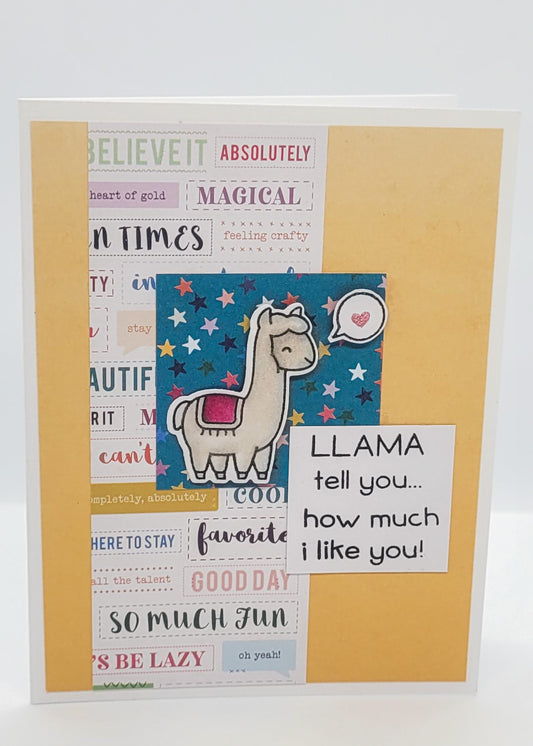 BELIEVE IT
ABSOLUTELY
heart of gold
MAGICAL
N TIMES
feeling crafty
TY
in
stay
AUTIF
RIT
M
can't
completely, absolutely
COOL
HERE TO STAY
favorite
all the talent
GOOD DAY
SO MUCH FUN
'S BE LAZY
oh yeah!
LLAMA
tell you...
how much
i like you!